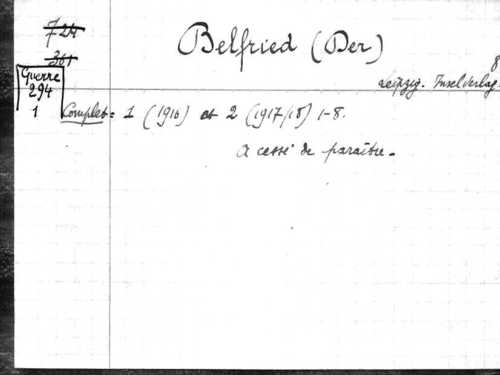 724
Belfried (Der)
361
8
Guerre
294
1
Leipzig. Inselverlag.
Complet = 1 (1916) et 2 (1917/18) 1-8.
A cessé de paraître.